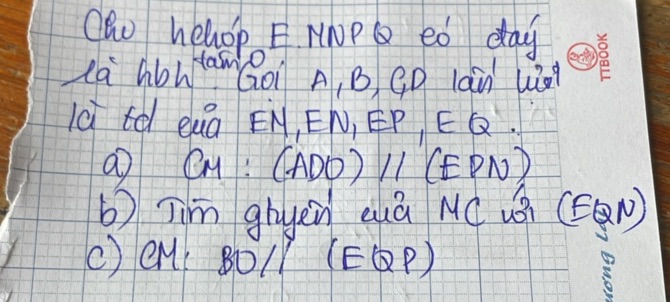 Cho hchóp E.MNPQ có đáy
là hbh tâm O. Gọi A, B, C, D lần lượt
là tđ của EM, EN, EP, EQ.
a) CM: (ADO) // (EPN)
b) Tìm ghuyến của MC với (EQN)
c) CM: BO // (EQP)
TTBOOK